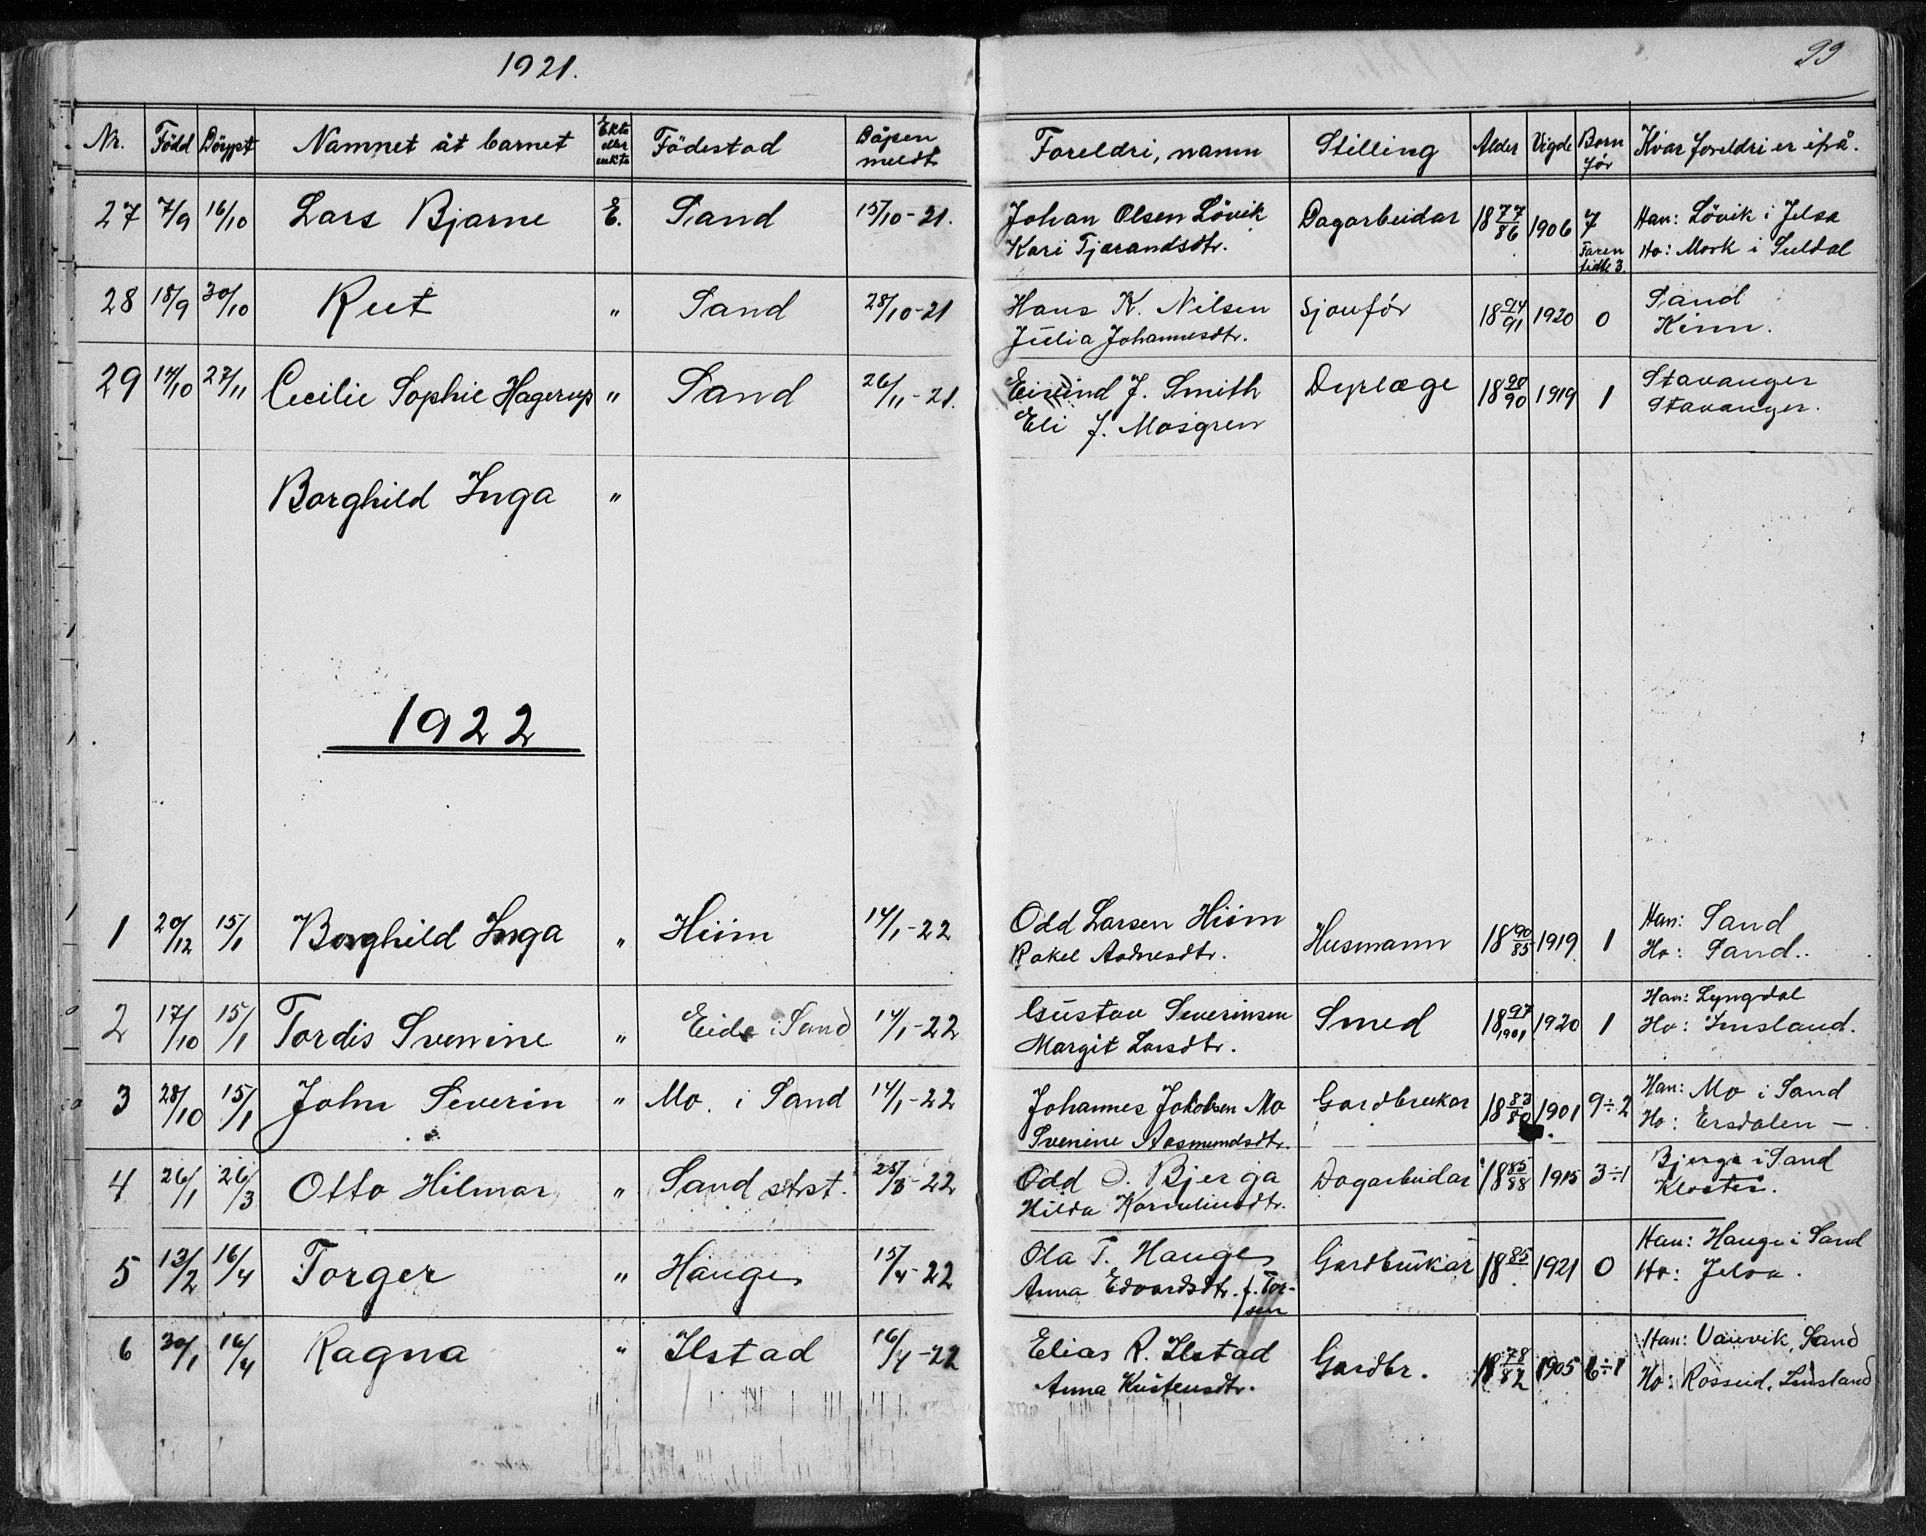 1921.
99
Nr. Född Döypt Namnet åt barnet Ekte eller uekte Födestad Dåpen meldt Foreldri, namn Stilling Alder Vigde Born för Kvar foreldri er ifrå.
27 7/9 16/10 Lars Bjarne E. Sand 15/10-21. Johan Olsen Lövik Dagarbeidar 18 77/86 1906 7 Han: Lövik i Jelsa
Kari Tjerandsdtr. Faren fidtl 3. Ho: Mork i Suldal
28 18/9 30/10 Rut " Sand 28/10-21 Hans K. Nilsen Sjauför 18 94/91 1920 0 Sand
Julia Johannesdtr. Kinn.
29 14/10 27/11 Cecilie Sophie Hagerup " Sand 26/11-21. Eivind J. Smith Dyrlæge 18 90/90 1919 1 Stavanger
Eli J. Mosgren Stavanger.
Borghild Inga "
1922
1 20/12 15/1 Borghild Inga " Hiim 14/1-22 Odd Larsen Hiim Husmann 18 90/85 1919 1 Han: Sand
Rakel Aadnesdtr. Ho: Sand.
2 17/10 15/1 Tordis Svenine " Eide i Sand 14/1-22 Gustav Severinsen Smed 18 97/1901 1920 1 Han: Lyngdal
Margit Larsdtr. Ho: Imsland.
3 28/10 15/1 John Severin " Mo i Sand 14/1-22 Johannes Jakobsen Mo Gardbrukar 18 83/80 1901 9÷2 Han: Mo i Sand
Svenine Aasmundsdtr. Ho: Ersdalen —
4 26/1 26/3 Otto Hilmar " Sand stst. 25/3-22 Odd O. Bjerga Dagarbeidar 18 85/88 1915 3÷1 Bjerga i Sand
Hilda Korneliusdtr. Kloster.
5 13/2 16/4 Torger " Hauge 15/4-22 Ola T. Hauge Gardbrukar 18 85 1921 0 Han: Hauge i Sand
Anna Edvardsdtr. f. Torsen Ho: Jelsa.
6 30/1 16/4 Ragna " Ilstad 16/4-22 Elias R. Ilstad Gardbr. 18 78/82 1905 6÷1 Han: Vanvik, Sand
Anna Kristensdtr. Ho: Rossud, Imsland